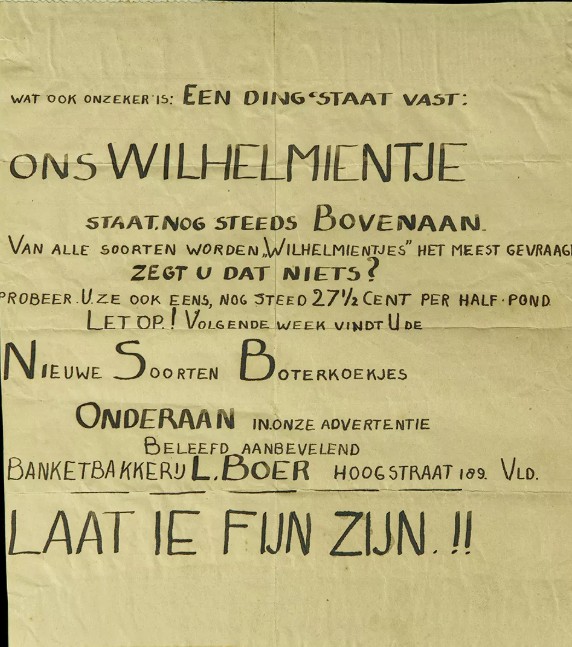 WAT OOK ONZEKER IS: EEN DING STAAT VAST:
ONS WILHELMIENTJE
STAAT NOG STEEDS BOVENAAN.
VAN ALLE SOORTEN WORDEN „WILHELMIENTJES" HET MEEST GEVRAAGD
ZEGT U DAT NIETS?
PROBEER U ZE OOK EENS, NOG STEED 27½ CENT PER HALF-POND
LET OP! VOLGENDE WEEK VINDT U DE
NIEUWE SOORTEN BOTERKOEKJES
ONDERAAN IN ONZE ADVERTENTIE
BELEEFD AANBEVELEND
BANKETBAKKERIJ L. BOER HOOGSTRAAT 189. VLD.
LAAT IE FIJN ZIJN.!!